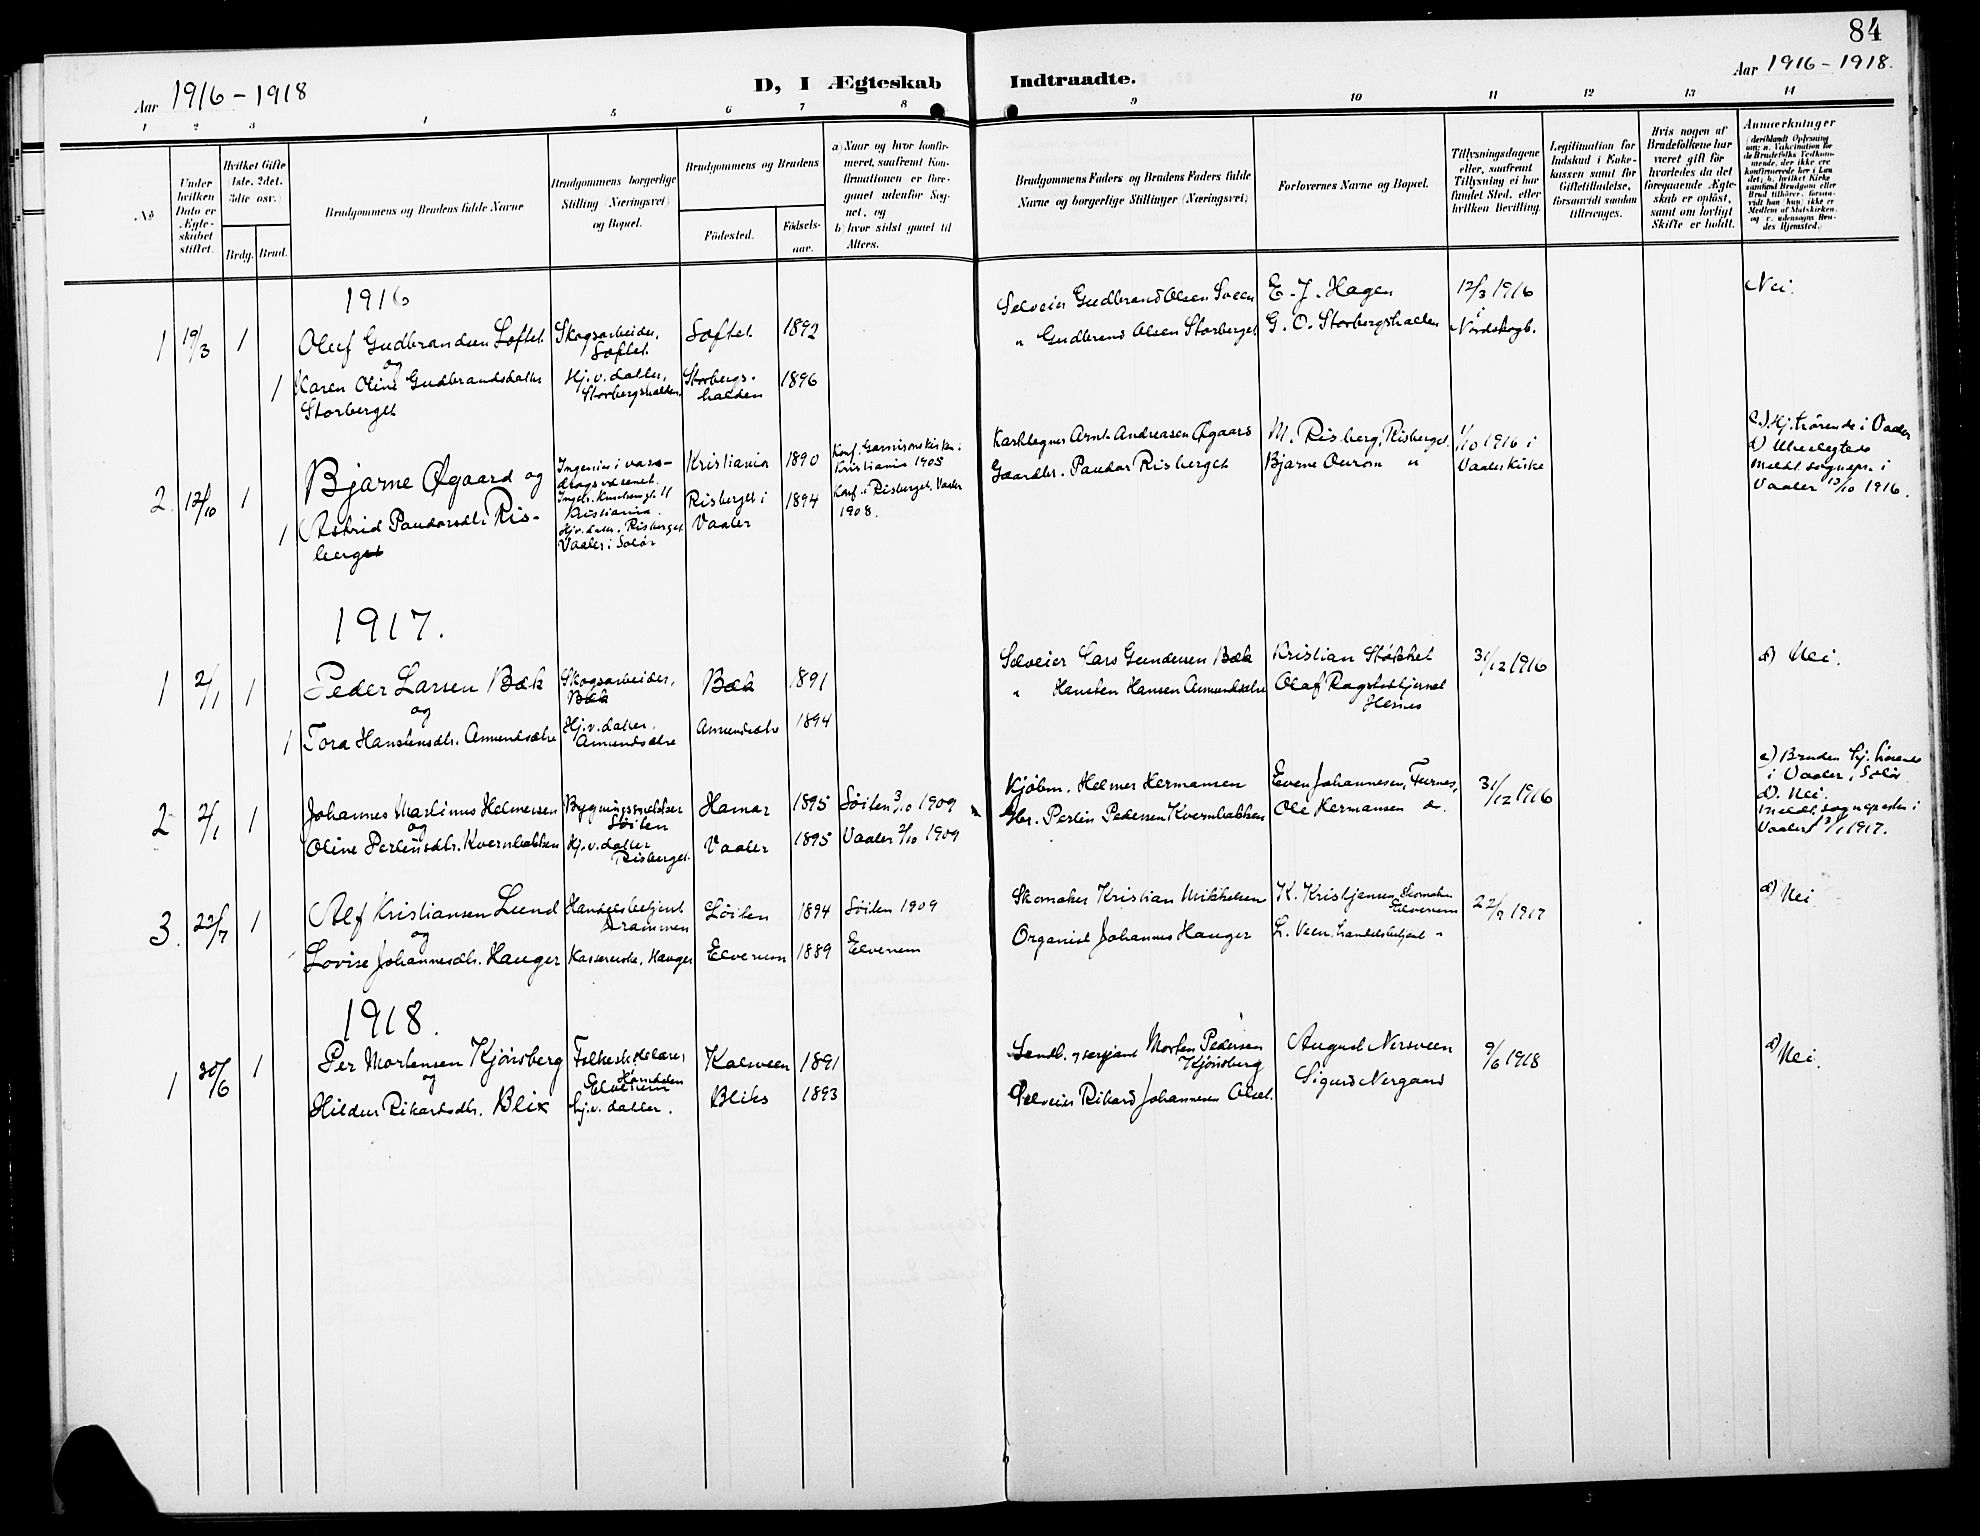 84
Aar 1916-1918
D, I Ægteskab Indtraadte.
Aar 1916-1918.
1 2 3 4 5 6 7 8 9 10 11 12 13 14
No
Under hvilken Dato er Ægteskabet stiftet.
Hvilket Gifte (1ste, 2det, 3die osv.)
Brdg. Brud.
Brudgommens og Brudens fulde Navne
Brudgommens borgerlige Stilling (Næringsvei) og Bopæl.
Brudgommens og Brudens
Fødested.
Fødselsaar.
a) Naar og hvor konfirmeret, saafremt Konfirmationen er foregaaet udenfor Sognet, og
b) hvor sidst gaaet til Alters.
Brudgommens Faders og Brudens Faders fulde Navne og borgerlige Stillinger (Næringsvei)
Forlovernes Navne og Bopæl.
Tillysningsdagene eller, saafremt Tillysning ei har fundet Sted, efter hvilken Bevilling.
Legitimation for Indskud i Enkekassen samt for Giftetilladelse, forsaavidt saadan tiltrænges.
Hvis nogen af Brudefolkene har været gift før hvorledes da det foregaaende Ægteskab er opløst, samt om lovligt Skifte er holdt.
Anmærkninger
1916
1 19/3 1 Oluf Gudbrandsen Løftet Skogsarbeider, Løftet Løftet 1892
Selveier Gudbrand Olsen Sveen E. J. Hagen 12/3 1916 Nei.
og
1 Karen Oline Gudbrandsdatter Storberget Hj.v. datter, Storbergshalden Storbergshalden 1896
" Gudbrand Olsen Storberget G. O. Storbergshalden i Nordskogb.
2. 12/10 1 Bjarne Øgaard og Ingeniør i vasdragsvesenet. Kristiania 1890 Konf. Garnisonskirken i Kristiania 1905
Arnt Andreasen Øgaard M. Risberg, Risberget 1/10 1916 i Vaaler kirke
1 Astrid Paudorsdtr. Risberget Hj.v. datter. Risberget Vaaler i Solør Risberget i Vaaler 1894 Konf. i Risberget, Vaaler 1908.
Gaardbr. Paudor Risberget Bjarne Ourom "
Hj. hørende i Vaaler
meddt. sognepr. i Vaaler 13/10 1916.
1917.
1 2/1 1 Peder Larsen Bæk Skogsarbeider, Bæk Bæk 1891
Selveier Lars Gundersen Bæk Kristian Støkket 31/12 1916 d) Nei.
og
1 Tora Hanstensdtr. Amundsætre Hj.v. datter. Amundsætre Amundsætr 1894
" Hansten Hansen Amundsætre Olaf Hernes
2 2/1 1 Johannes Martinus Helmersen Bygningssnekker Løiten Hamar 1895 Løiten 3/10 1909
Kjøbm. Helmer Hermansen Even Johannesen, Furnes, 31/12 1916
og
Oline Perlensdtr. Kvernbakken Hj.v. datter Risberget. Vaaler 1895 Vaaler 2/10 1909
Gbr. Perlin Pedersen Kvernbakken Ole Hermansen do.
c) Bruden hj. hørende i Vaaler, Solør.
d). Nei.
meddt. sognepresten i Vaaler 13/1 1917.
3. 22/7 1 Alf Kristiansen Lund Handelsbetjent Drammen Løiten 1894 Løiten 1909
Skomaker Kristian Mikkelsen K. Kristjensen Skomaker Elverum 22/7 1917 d) Nei
og
Lovise Johannesdtr. Hauger Kassererske, Hauger Elverum 1889 Elverum
Organist Johannes Hauger L. Veen, handelsbetjent "
1918.
1 30/6 1 Per Mortensen Kjønsberg Folkeskolelærer Elverum Kalveen 1891
Landb. og sersjant Morten Pedersen Kjønsberg August Nersveen 9/6 1918 d) Nei.
og
Hildur Rikardsdtr. Blix hj.v. datter. Bliks 1893
Selveier Rikard Johannesen Sigurd Nergaard